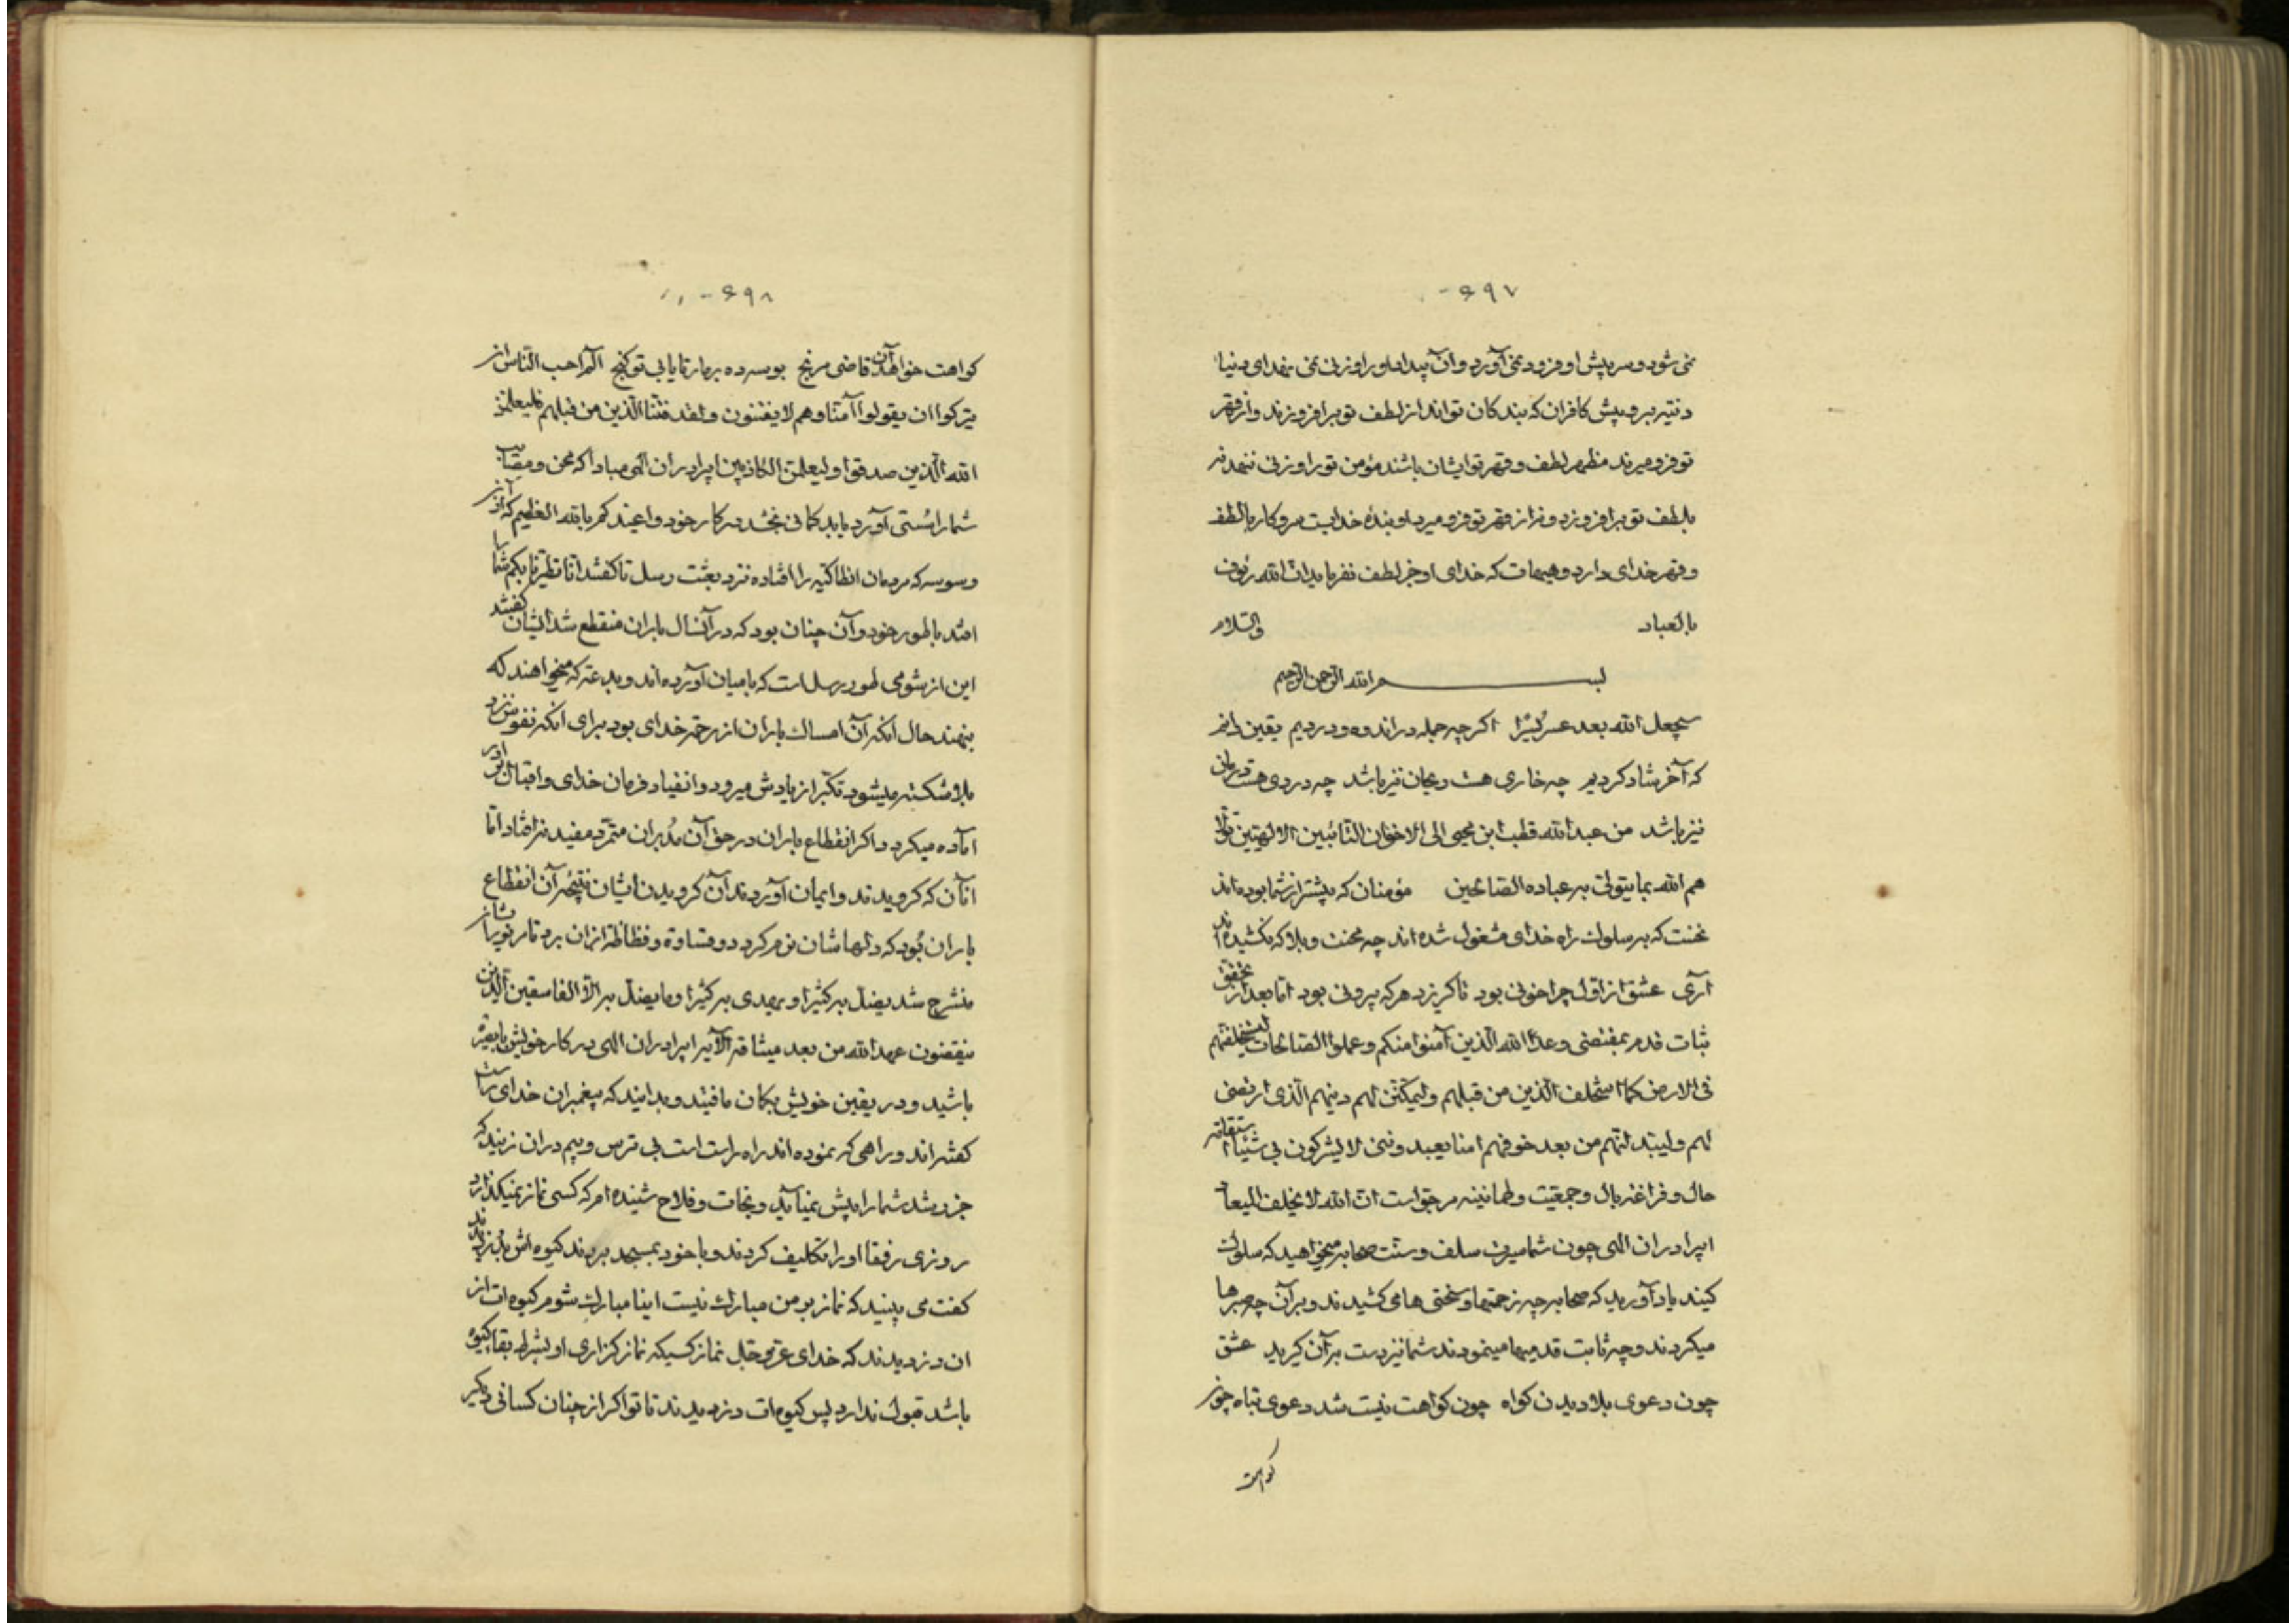 ۶۹۷
نمی شود و سر پیش او فرود نمی آورد و آن پیدا و او را وزنی نمی نهد ای دنیا
دنیه برو پیش کافران که بندگان تواند از لطف تو برافروزند و از قهر
تو فرو میرند مظهر لطف و قهر تو ایشان باشند مؤمن تو را وزنی ننهد نه
بلطف تو برافروزد و نه از قهر تو فرو میرد او بندهٔ خدایست سر و کار با لطف
و قهر خدای دارد و هیهات که خدای او جز لطف نفرماید ان الله رؤف
بالعباد والسلام
بسم الله الرحمن الرحیم
سیجعل الله بعد عسر یسرا اکرچه جمله در اندوه و دردیم یقین دانم
که آخر شاد کردیم چه خاری هست ریحان نیز باشد چه دردی هست درمان
نیز باشد من عبد الله قطب ابن محیی الی الاخوان التائبین الالهیین تولا
هم الله بما یتولی به عباده الصالحین مؤمنان که پیشتر از شما بوده اند
نخست که بسلوک راه خدای مشغول شده اند چه محنت و بلا که نکشیده اند
آری عشق از اول چرا خونی بود تا کریزد هر که بیرونی بود اما بعد از تحقق
ثبات قدم بمقتضی وعد الله الذین آمنوا منکم و عملوا الصالحات لیستخلفنهم
فی الارض کما استخلف الذین من قبلهم و لیمکنن لهم دینهم الذی ارتضی
لهم و لیبدلنهم من بعد خوفهم امنا یعبدوننی لا یشرکون بی شیئا استقامة
حال و فراغة بال و جمعیت و طمانینه مرجو است ان الله لا یخلف المیعاد
ای برادران الهی چون شما سیرت سلف و سنت صحابه میخواهید که سلوک
کنید یاد آورید که صحابه چه زحمتها و سختی ها می کشیدند و بر آن چه صبرها
میکردند و چه ثابت قدمیها مینمودند شما نیز دست بر آن کیرید عشق
چون دعوی بلا دیدن کواه چون کواهت نیست شد دعوی تباه چون
کواهت
۶۹۸
کواهت خواهد آن قاضی مرنج بوسه ده بر مار تا یابی تو کنج الم احسب الناس ان
یترکوا ان یقولوا آمنا و هم لا یفتنون و لقد فتنا الذین من قبلهم فلیعلمن
الله الذین صدقوا و لیعلمن الکاذبین ای برادران الهی مبادا که محن و مصائب
شما را سستی آورد یا بد کمانی بخشد در کار خود و اعیذکم بالله العظیم که از آن
وسوسه که مردمان انطاکیه را افتاده نزد بعثت رسل تا کفتند انا تطیرنا بکم شما را
افتد با طور خود و آن چنان بود که در آن سال باران منقطع شد ایشان کفتند
این از شومی طور رسل است که با میان آورده اند و بدعته که میخواهند که
بنهند حال آنکه آن امساک باران از رحمة خدای بود برای آنکه نفوس نزد
بلا شکسته میشود تکبر از یادش میرود و انقیاد فرمان خدای و اقبال بر او را
آماده میکرد و اکر انقطاع باران در حق آن مدبران متمرد مفید نه افتاد اما
آنان که کرویدند و ایمان آوردند آن کرویدن ایشان نتیجهٔ آن انقطاع
باران بود که دلهاشان نرم کرد و قساوة و فظاظة از آن برد تا بر نور ایشان
منشرح شد یضل به کثیرا و یهدی به کثیرا و ما یضل به الا الفاسقین الذین
ینقضون عهد الله من بعد میثاقه الآیه ای برادران الهی در کار خویش با بصیرة
باشید و در یقین خویش بکمان مافتید و بدانید که پیغمبران خدای راست
کفته اند و راهی که نموده اند راه راست است بی ترس و بیم در آن زنید که
جز رشد شما را پیش نمی آید و نجات و فلاح شنیده ام که کسی نماز نمیکذارد
روزی رفقا او را تکلیف کردند و با خود بمسجد بردند کیوه اش بدزدیدند
کفت می بینید که نماز بر من مبارک نیست اینا مبارک شوم کیوه ات از
آن دزدیدند که خدای عز و جل نماز کسیکه نماز کزاری او بشرط بقا کیوه
باشد قبول ندارد پس کیوه ات دزدیدند تا تو اکر از چنان کسانی دیکر